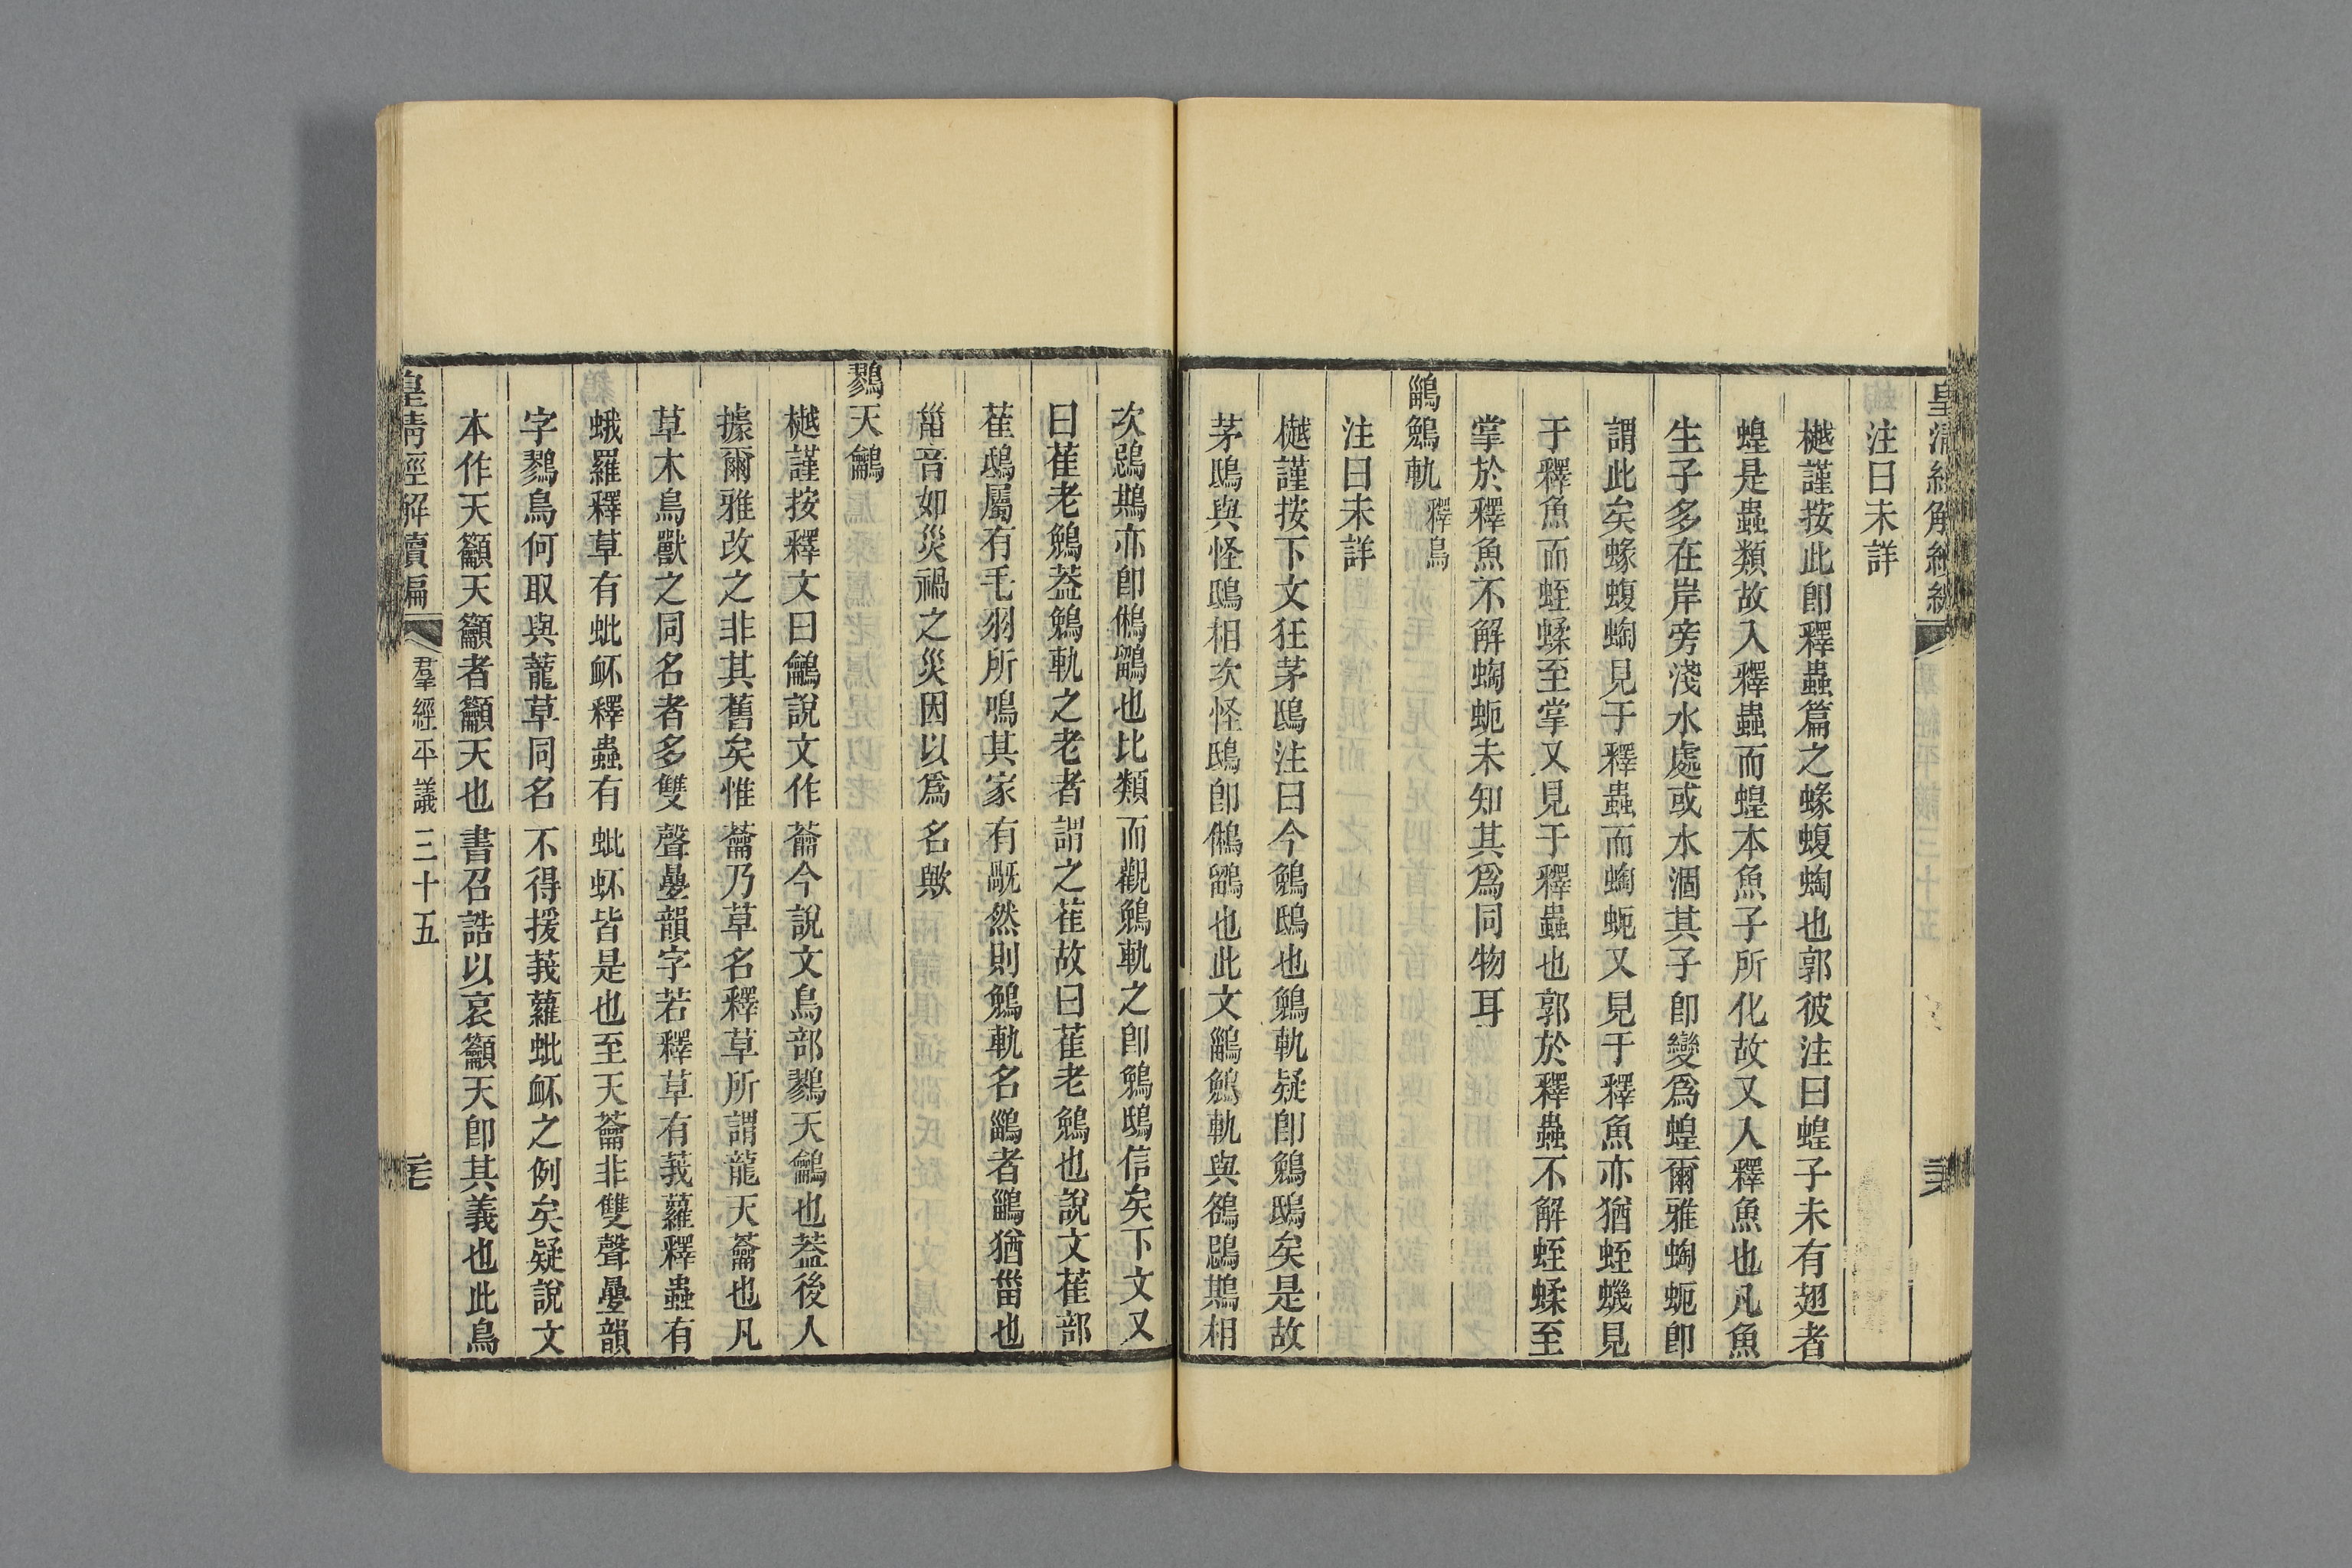 注曰未詳
樾謹按此卽釋蟲篇之蝝蝮蜪也郭彼注曰蝗子未有翅者
蝗是蟲類故入釋蟲而蝗本魚子所化故又入釋魚也凡魚
生子多在岸旁淺水處或水涸其子卽變爲蝗爾雅蜪蚅卽
謂此矣蝝蝮蜪見于釋蟲而蜪蚅又見于釋魚亦猶蛭蟣見
于釋魚而蛭蝚至掌又見于釋蟲也郭於釋蟲不解蛭蝚至
掌於釋魚不解蜪蚅未知其爲同物耳
鶅鵵軌 釋鳥
注曰未詳
樾謹按下文狂茅鴟注曰今鵵鴟也鵵軌疑卽鵵鴟矣是故
茅鴟與怪鴟相次怪鴟卽鵂鶹也此文鶅鵵軌與鵅鶀相
次鵅鶀亦卽鵂鶹也比類而觀鵵軌之卽鵵鴟信矣下文又
曰萑老鵵葢鵵軌之老者謂之萑故曰萑老鵵也說文萑部
萑鴟屬有毛𧢲所鳴其家有旤然則鵵軌名鶅者鶅猶甾也
甾音如災禍之災因以爲名歟
鷚天鸙
樾謹按釋文曰鸙說文作蘥今說文鳥部鷚天鸙也葢後人
據爾雅改之非其舊矣惟蘥乃草名釋草所謂蘢天蘥也凡
草木鳥獸之同名者多雙聲疊韻字若釋草有莪蘿釋蟲有
蛾羅釋草有蚍衃釋蟲有蚍蚍皆是也至天蘥非雙聲疊韻
字鷚鳥何取與蘢草同名不得援莪蘿蚍衃之例矣疑說文
本作天籲天籲者籲天也書召誥以哀籲天卽其義也此鳥
皇淸經解續編 羣經平議三十五